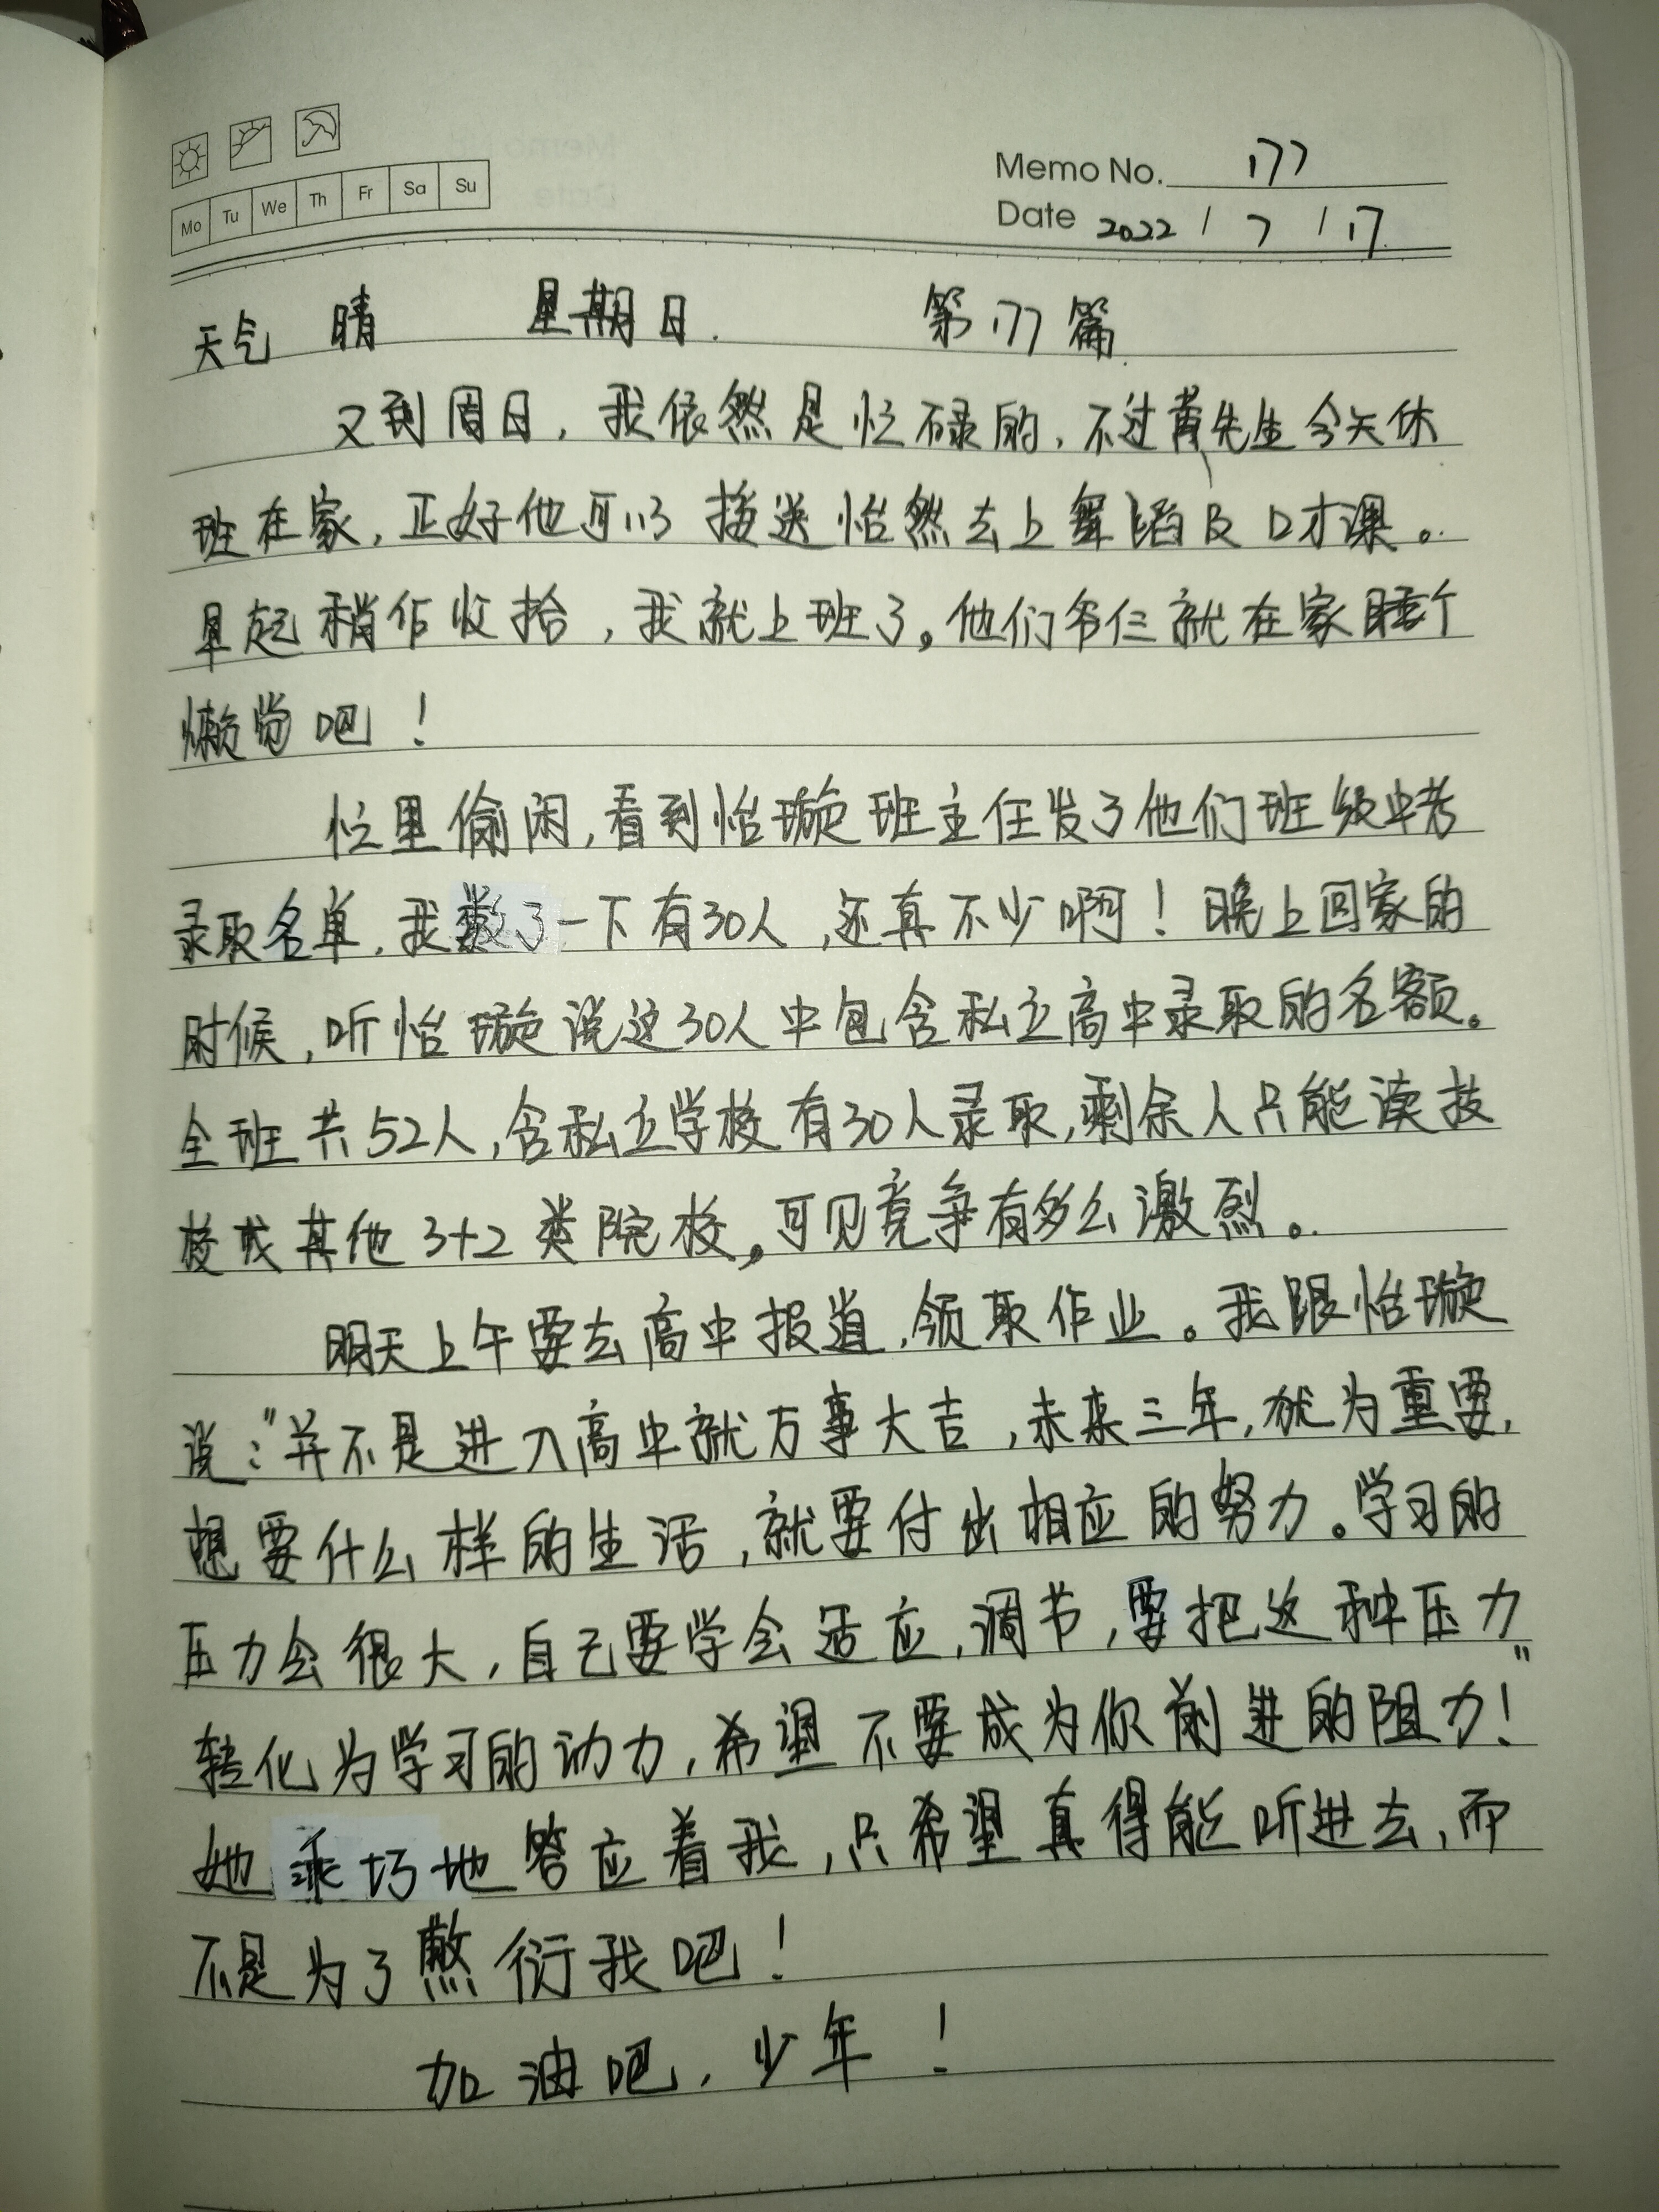 Memo No. 177
Mo Tu We Th Fr Sa Su
Date 2022 / 7 / 17
天气 晴 星期日. 第177篇.
又到周日，我依然是忙碌的，不过黄先生今天休
班在家，正好他可以接送怡然去上舞蹈及口才课。
早起稍作收拾，我就上班了。他们爷仨就在家睡个
懒觉吧！
忙里偷闲，看到怡璇班主任发了他们班级中考
录取名单，我数了一下有30人，还真不少啊！晚上回家的
时候，听怡璇说这30人中包含私立高中录取的名额。
全班共52人，含私立学校有30人录取，剩余人只能读技
校或其他3+2类院校。可见竞争有多么激烈。
明天上午要去高中报道，领取作业。我跟怡璇
说："并不是进入高中就万事大吉，未来三年，尤为重要，
想要什么样的生活，就要付出相应的努力。学习的
压力会很大，自己要学会适应，调节，要把这种压力
转化为学习的动力，希望不要成为你前进的阻力！"
她乖巧地答应着我，只希望真得能听进去，而
不是为了敷衍我吧！
加油吧，少年！